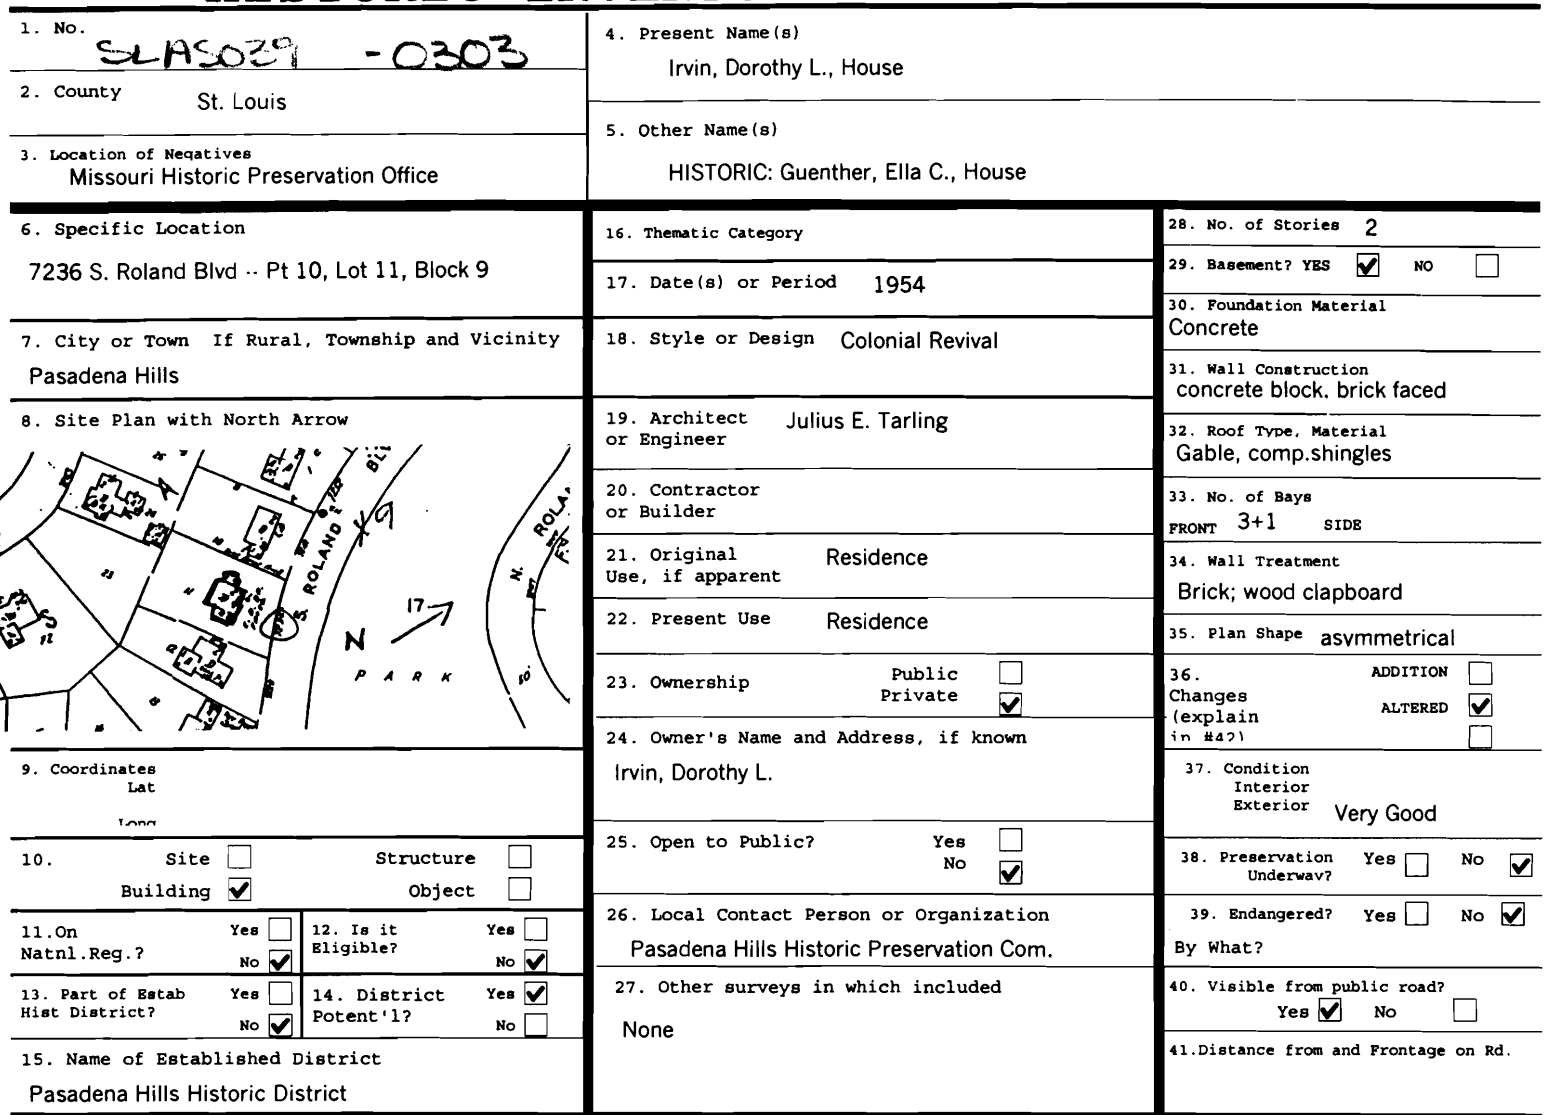 1. No.
SLAS039 -0303
2. County St. Louis
3. Location of Negatives
Missouri Historic Preservation Office
4. Present Name(s)
Irvin, Dorothy L., House
5. Other Name(s)
HISTORIC: Guenther, Ella C., House
6. Specific Location
7236 S. Roland Blvd -- Pt 10, Lot 11, Block 9
7. City or Town If Rural, Township and Vicinity
Pasadena Hills
8. Site Plan with North Arrow
S. ROLAND
BL
N.
ROLA
17
N
PARK
9. Coordinates
Lat
Long
10. Site Structure
Building Object
11.On Yes
Natnl.Reg.? No
12. Is it Yes
Eligible? No
13. Part of Estab Yes
Hist District? No
14. District Yes
Potent'l? No
15. Name of Established District
Pasadena Hills Historic District
16. Thematic Category
17. Date(s) or Period 1954
18. Style or Design Colonial Revival
19. Architect Julius E. Tarling
or Engineer
20. Contractor
or Builder
21. Original Residence
Use, if apparent
22. Present Use Residence
23. Ownership Public
Private
24. Owner's Name and Address, if known
Irvin, Dorothy L.
25. Open to Public? Yes
No
26. Local Contact Person or Organization
Pasadena Hills Historic Preservation Com.
27. Other surveys in which included
None
28. No. of Stories 2
29. Basement? YES NO
30. Foundation Material
Concrete
31. Wall Construction
concrete block. brick faced
32. Roof Type, Material
Gable, comp.shingles
33. No. of Bays
FRONT 3+1 SIDE
34. Wall Treatment
Brick; wood clapboard
35. Plan Shape asymmetrical
36. ADDITION
Changes
ALTERED
(explain
in #42)
37. Condition
Interior
Exterior Very Good
38. Preservation Yes No
Underway?
39. Endangered? Yes No
By What?
40. Visible from public road?
Yes No
41.Distance from and Frontage on Rd.